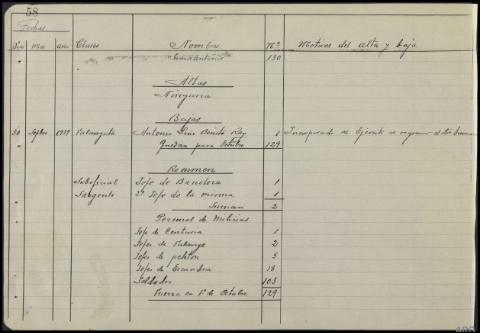 58
Fechas
Dia Mes Año Clases Nombres Nº Motivos del alta y baja
Suma anterior 130
Altas
Ninguna
Bajas
30 Sepbre 1937 Falangista Antonio Benito Rey 1 Incorporado al Ejército
Quedan para Octubre 129
Resumen
Suboficial Jefe de Bandera 1
Sargento 2º Jefe de la misma 1
Suman 2
Personal de Milicias
Jefe de Centuria 1
Jefes de Falange 2
Jefes de pelotón 5
Jefes de Escuadra 18
Soldados 103
Fuerza en 1º de Octubre 129